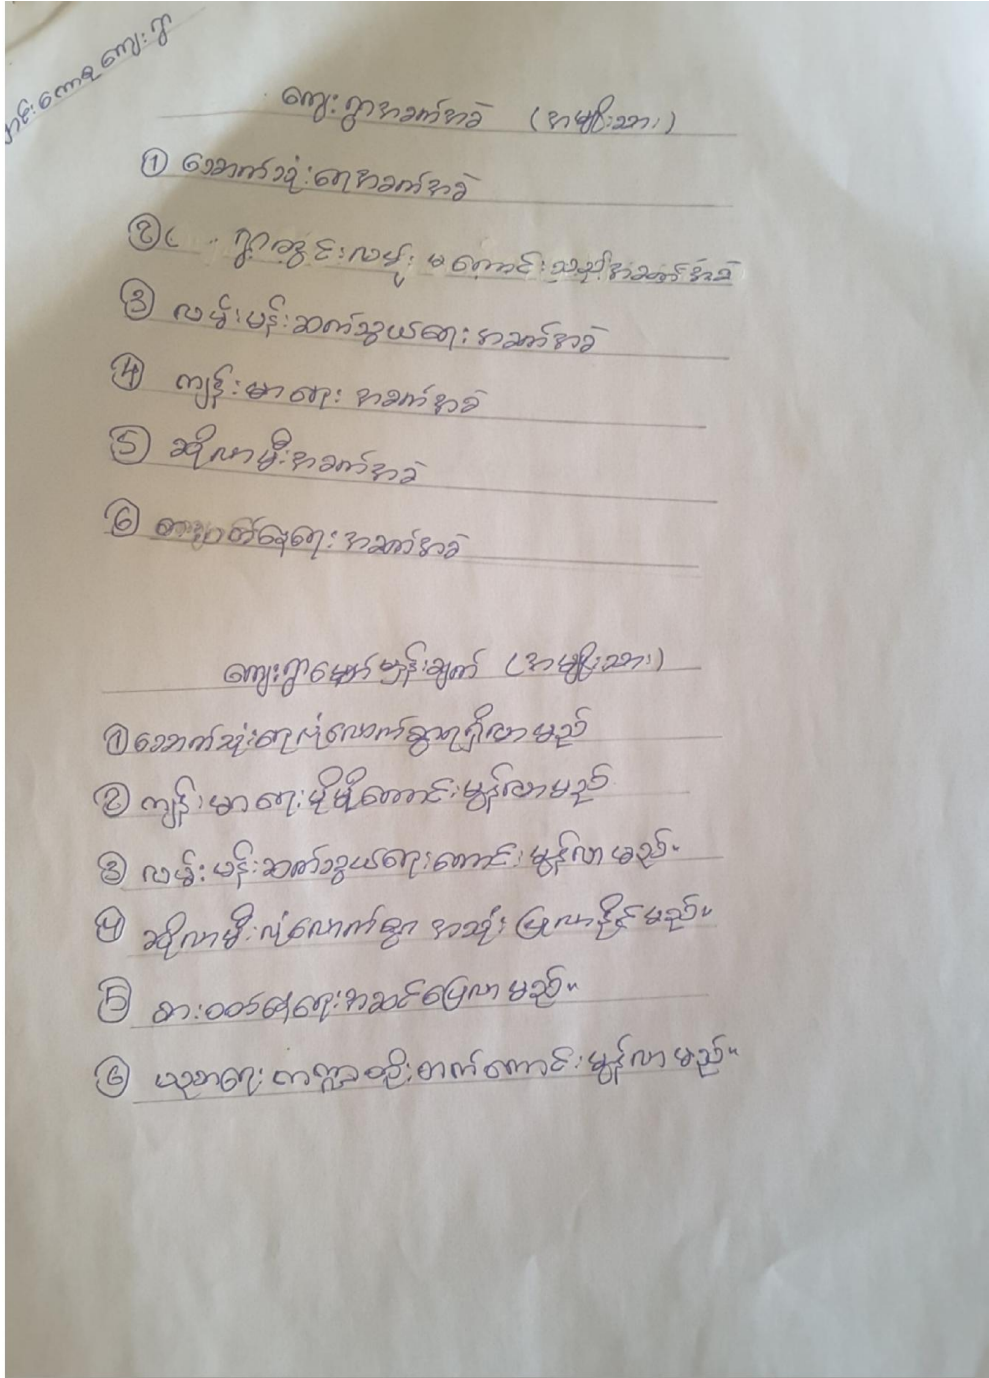 ကျေးရွာ
ကျေးရွာအခက်အခဲ (အမျိုးသား)
① သောက်သုံးရေအခက်အခဲ
② ရွာတွင်းလမ်း မကောင်းသည့်အခက်အခဲ
③ လမ်းပန်းဆက်သွယ်ရေးအခက်အခဲ
④ ကျန်းမာရေး အခက်အခဲ
⑤ ဆိုလာမီးအခက်အခဲ
⑥ စားဝတ်နေရေးအခက်အခဲ
ကျေးရွာမျှော်မှန်းချက် (အမျိုးသား)
① သောက်သုံးရေလုံလောက်စွာရရှိလာမည်
② ကျန်းမာရေးပိုမိုကောင်းမွန်လာမည်
③ လမ်းပန်းဆက်သွယ်ရေးကောင်းမွန်လာမည်။
④ ဆိုလာမီးလုံလောက်စွာ အသုံးပြုလာနိုင်မည်။
⑤ စားဝတ်နေရေးအဆင်ပြေလာမည်။
⑥ ပညာရေးကဏ္ဍတိုးတက်ကောင်းမွန်လာမည်။